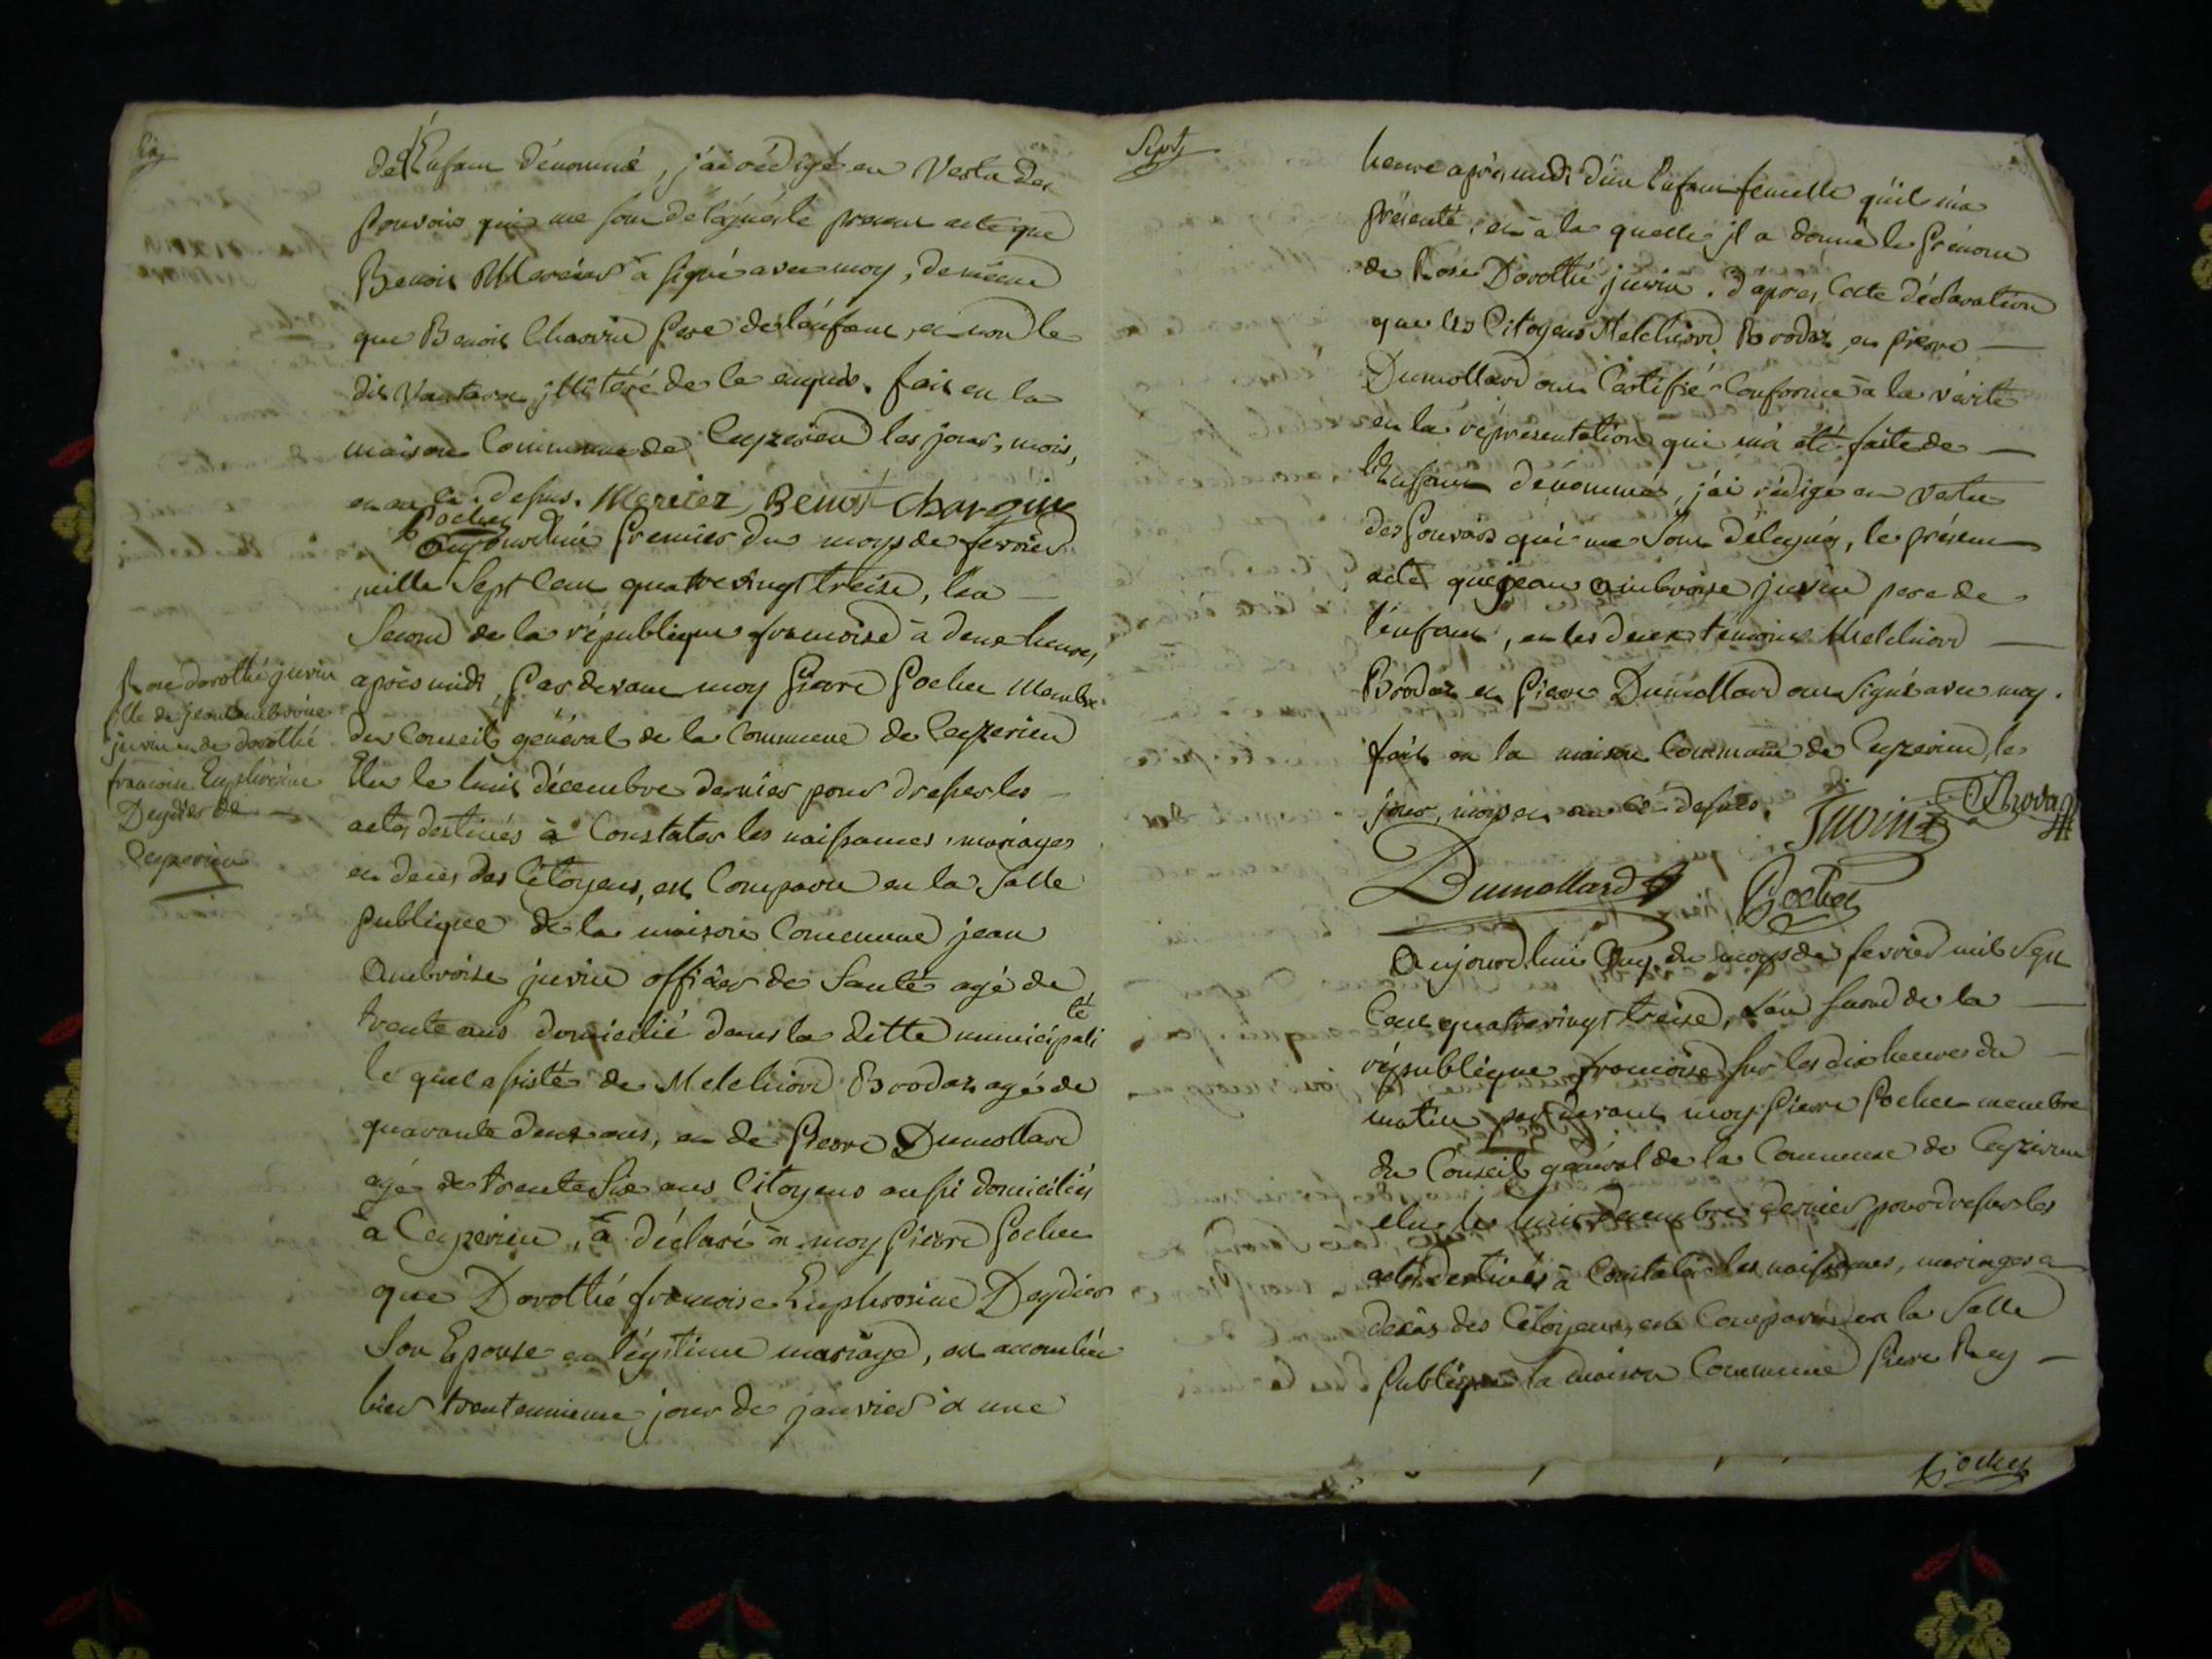 Six
de l'Enfant dénommé, j'ai rédigé en Vertu des
pouvoirs qui me sont délégués le present acte que
Benoit Mercier a signé avec moy, de meme
que Benoit Charvin pere de l'enfant, et non le
dit illitéré de ce enquis. fait en la
maison Commune de Ceyzerieu les jour, mois,
et an ci-dessus. Mercier Benoit Charvin
Pochet
Aujourdhui premier du moys de fevrier
mille Sept Cent quatrevingt treise, l'an
Second de la république francoise à deux heures
après midi, par devant moy pierre Pochet Membre
du Conseil général de la Commune de Ceyzerieu
Elu le huit décembre dernier pour dresser les
actes destinés à Constater les naissances, mariages
et décès des Citoyens, est Comparu en la Salle
publique de la maison Commune jean
Ambroise juvin officier de Santé agé de
trente ans domicilié dans la ditte municipali
té
le quel assisté de Melchiord Brodaz agé de
quarante deux ans, et de Pierre Dumollard
agé de trente six ans Citoyens aussi domiciliés
à Ceyzerieu, a déclaré à moy pierre Pochet
que Dorothé francoise Euphrosine Deydier
Son Epouse en légitime mariage, est accouchée
hier trenteunieme jour de janvier à une
Rose dorothé juvin
fille de jean ambroise
juvin et de dorothé
francoise Euphrosine
Deydier de
Ceyzerieu
Sept
heure après midi d'un Enfant femelle qu'il m'a
présenté, et à la quelle il a donné le Prénom
de Rose Dorothé juvin. d'après Cette déclaration
que les Citoyens Melchiord Brodaz, et pierre
Dumollard ont Certifié Conforme à la vérité
et la représentation qui m'a été faite de
l'Enfant dénommé, j'ai rédigé en vertu
des Pouvoirs qui me Sont délégués, le présent
acte que jean ambroise juvin pere de
l'enfant, et les deux témoins Melchiord
Brodaz et Pierre Dumollard ont Signé avec moy.
fait en la maison Commune de Ceyzerieu les
jour, moys et an ci-dessus. Juvin Brodaz
Dumollard Pochet
Aujourd'hui du moys de fevrier mil Sept
Cent quatrevingt treise, L'an second de la
république francoise sur les dix heures du
matin par devant moy Pierre Pochet membre
du Conseil général de la Commune de Ceyzerieu
elu le huit decembre dernier pour dresser les
actes destinés à Constater les naissances, mariages et
décès des Citoyens, est Comparu en la Salle
Publique la maison Commune Pierre Rey
Pochet